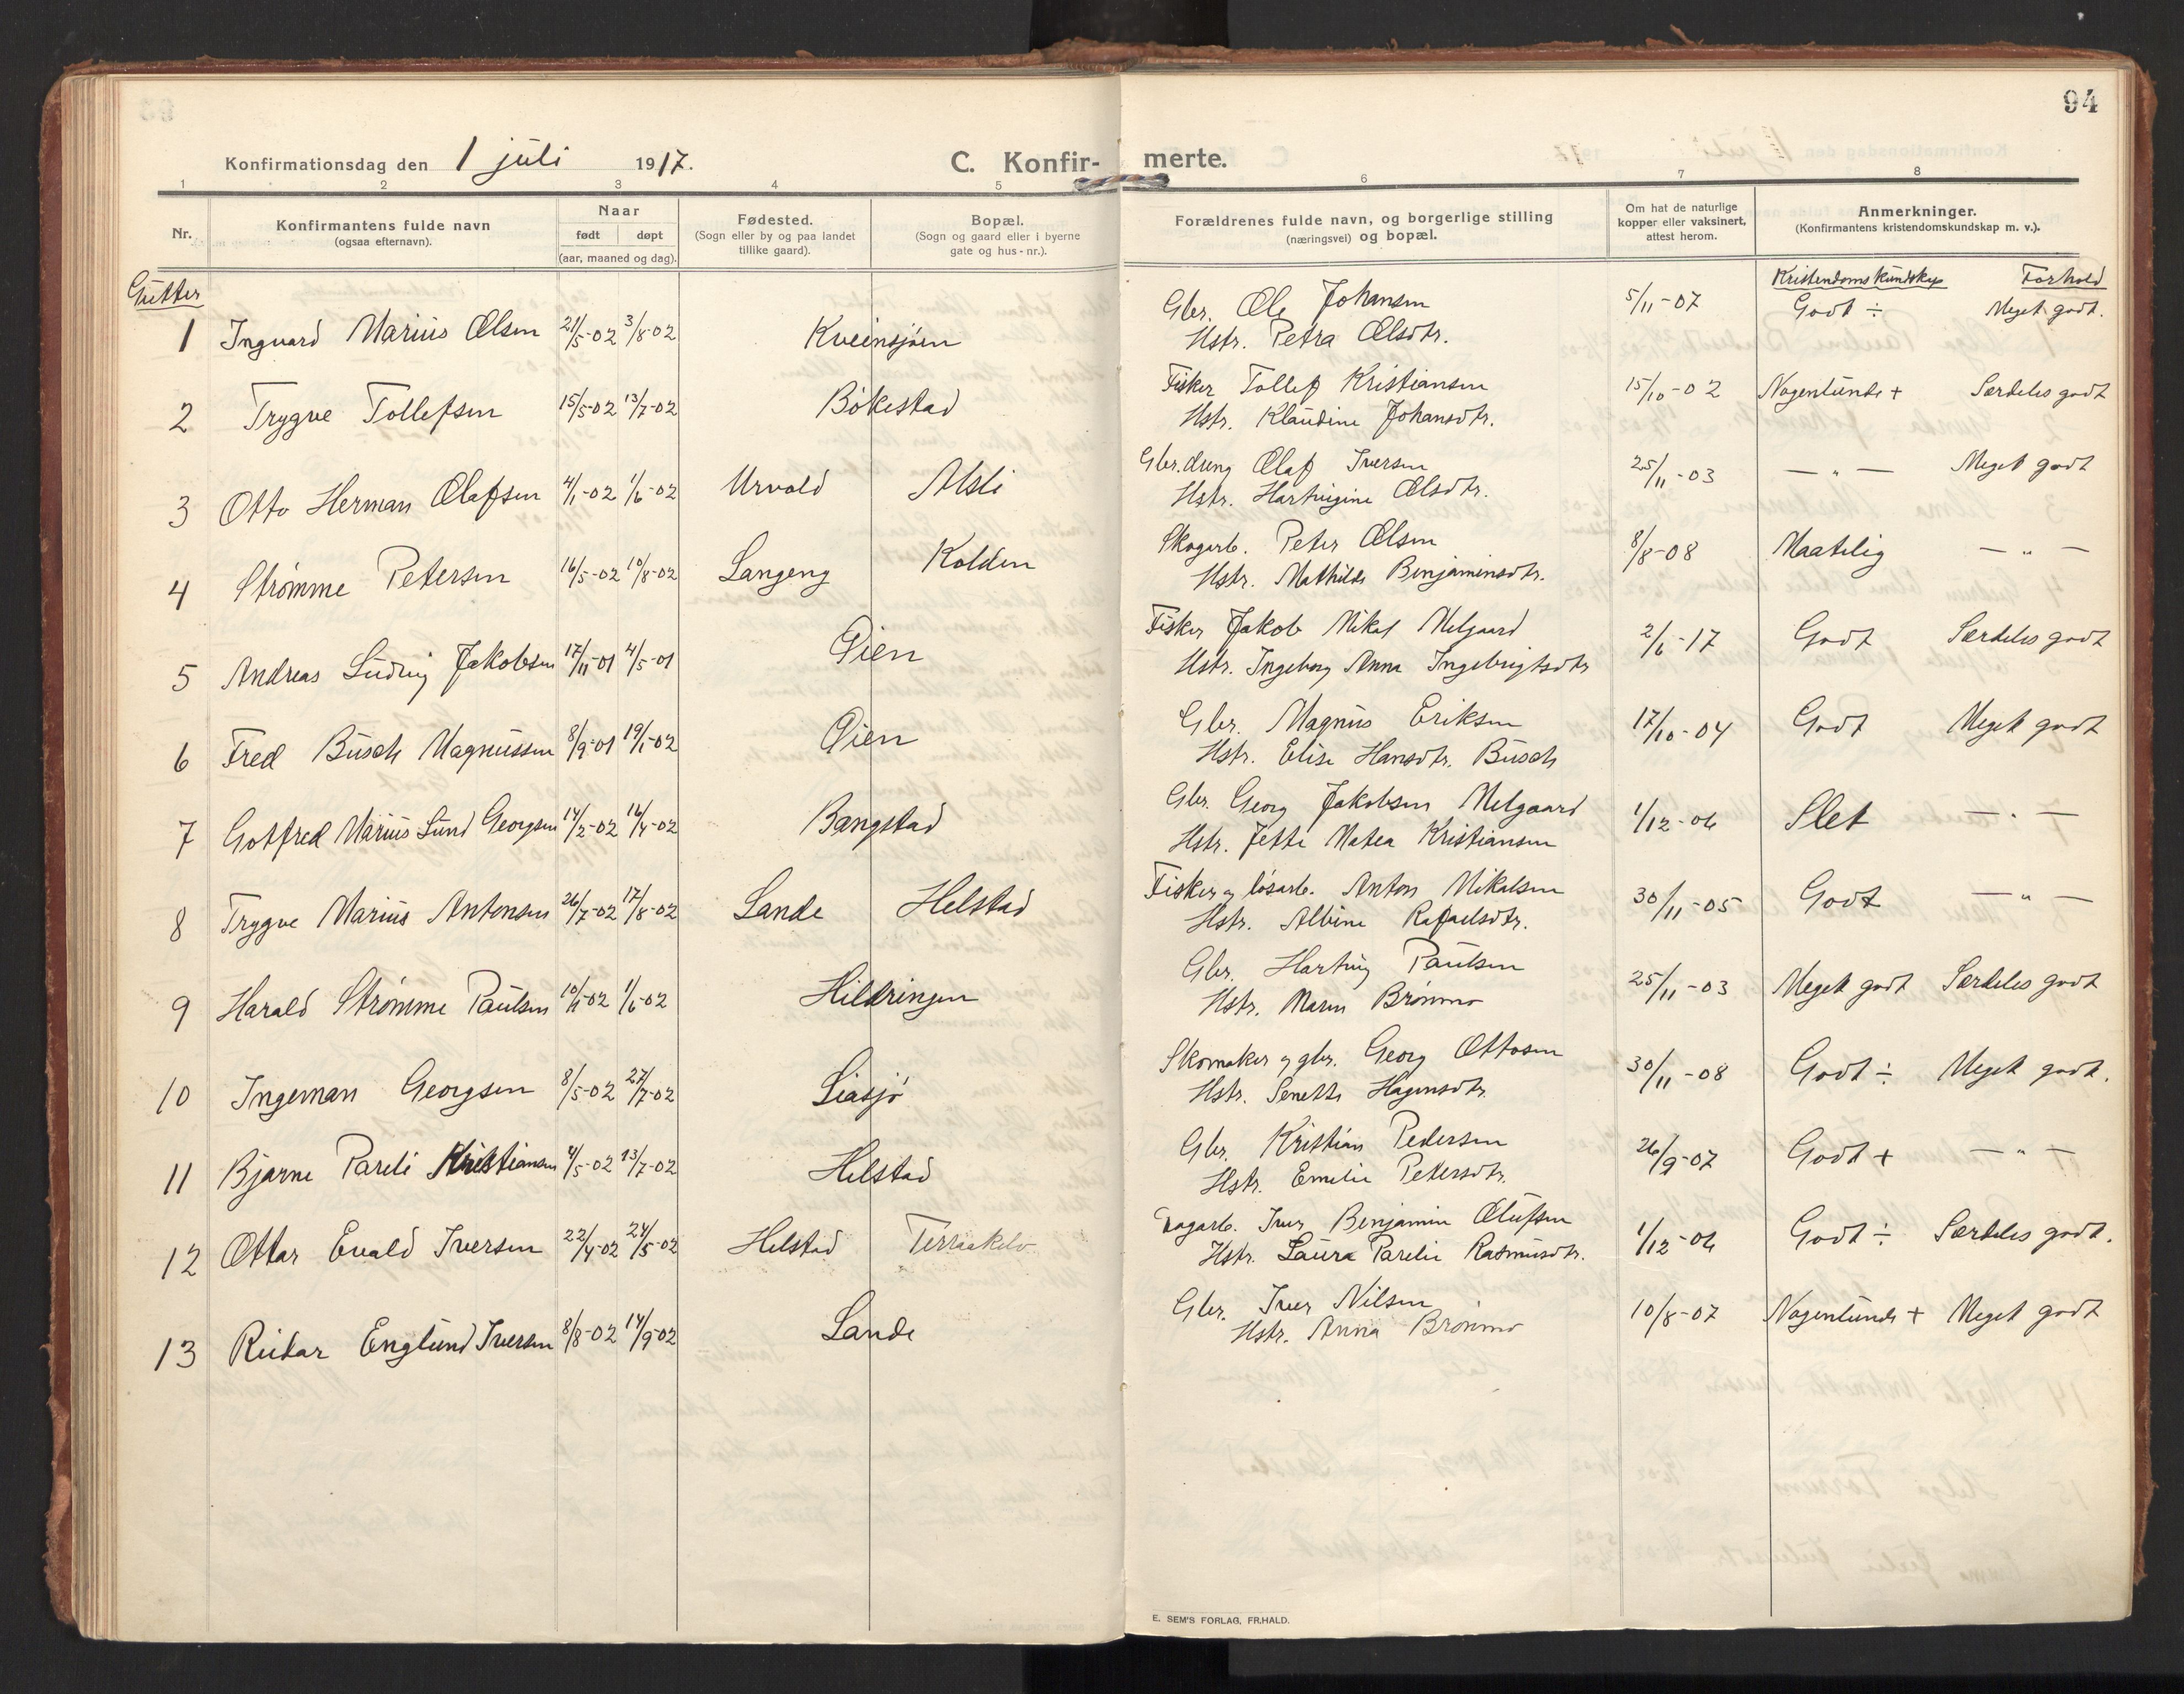 94
Konfirmationsdag den 1 juli 1917. C. Konfir- merte.
1 2 3 4 5 6 7 8
Nr. Konfirmantens fulde navn (ogsaa efternavn). Naar født døpt (aar, maaned og dag). Fødested. (Sogn eller by og paa landet tillike gaard). Bopæl. (Sogn og gaard eller i byerne gate og hus-nr.). Forældrenes fulde navn, og borgerlige stilling (næringsvei) og bopæl. Om hat de naturlige kopper eller vaksinert, attest herom. Anmerkninger. (Konfirmantens kristendomskundskap m. v.).
Gutter Kristendomskundskap Forhold
1 Ingvard Marius Olsen 21/5-02 3/8-02 Kveinsjøen Gbr. Ole Johansen 5/11-07 Godt ÷ Meget godt.
Hstr. Petra Olsdtr.
2 Trygve Tollefsen 15/5-02 13/7-02 Bøkestad Fisker Tollef Kristiansen 15/10-02 Nogenlunde + Særdeles godt
Hstr. Klaudine Johansdtr.
3 Otto Herman Olafsen 4/1-02 1/6-02 Urvold Alsli Gbr.dreng Olaf Iversen 25/11-03 — " — Meget godt
Hstr. Hartvigine Olsdtr.
4 Strømme Petersen 16/5-02 10/8-02 Langeng Kolden Skogarb. Peter Olsen 8/8-08 Maatelig — " —
Hstr. Mathilde Benjaminsdtr.
5 Andreas Ludvig Jakobsen 17/11-01 4/5-01 Øien Fisker Jakob Mikal Melgaard 2/6-17 Godt Særdeles godt
Hstr. Ingeborg Anna Ingebrigtsdtr
6 Fred Busch Magnussen 8/9-01 19/1-02 Øien Gbr. Magnus Eriksen 17/10-04 Godt Meget godt
Hstr. Elise Hansdtr. Busch
7 Gotfred Marius Lund Georgsen 14/2-02 16/4-02 Bangstad Gbr. Georg Jakobsen Melgaard 1/12-06 Slet — " —
Hstr. Jette Matea Kristiansen
8 Trygve Marius Antonsen 26/7-02 17/8-02 Lande Helstad Fisker og løsarb. Anton Mikalsen 30/11-05 Godt — " —
Hstr. Albine Rafaelsdtr.
9 Harald Strømme Paulsen 1/6-02 Hildringen Gbr. Hartvig Paulsen 25/11-03 Meget godt Særdeles godt
Hstr. Maren Brønmo
10 Ingeman Georgsen 8/5-02 27/7-02 Liasjø Skomaker og gbr. Georg Ottosen 30/11-08 Godt ÷ Meget godt.
Hstr. Senette Hagensdtr.
11 Bjarne Pareli Kristiansen 4/5-02 13/7-02 Helstad Gbr. Kristian Pedersen 26/9-07 Godt + — " —
Hstr. Emelie Petersdtr.
12 Ottar Evald Iversen 22/4-02 24/5-02 Helstad Terraakelv Dagarb. Iver Benjamin Olufsen 1/12-06 Godt ÷ Særdeles godt.
Hstr. Laura Parelie Rasmusdtr.
13 Reidar Englund Iversen 8/8-02 14/9-02 Lande Gbr. Iver Nilsen 10/8-07 Nogenlunde + Meget godt
Hstr. Anna Brønmo
E. SEM'S FORLAG, FR.HALD.